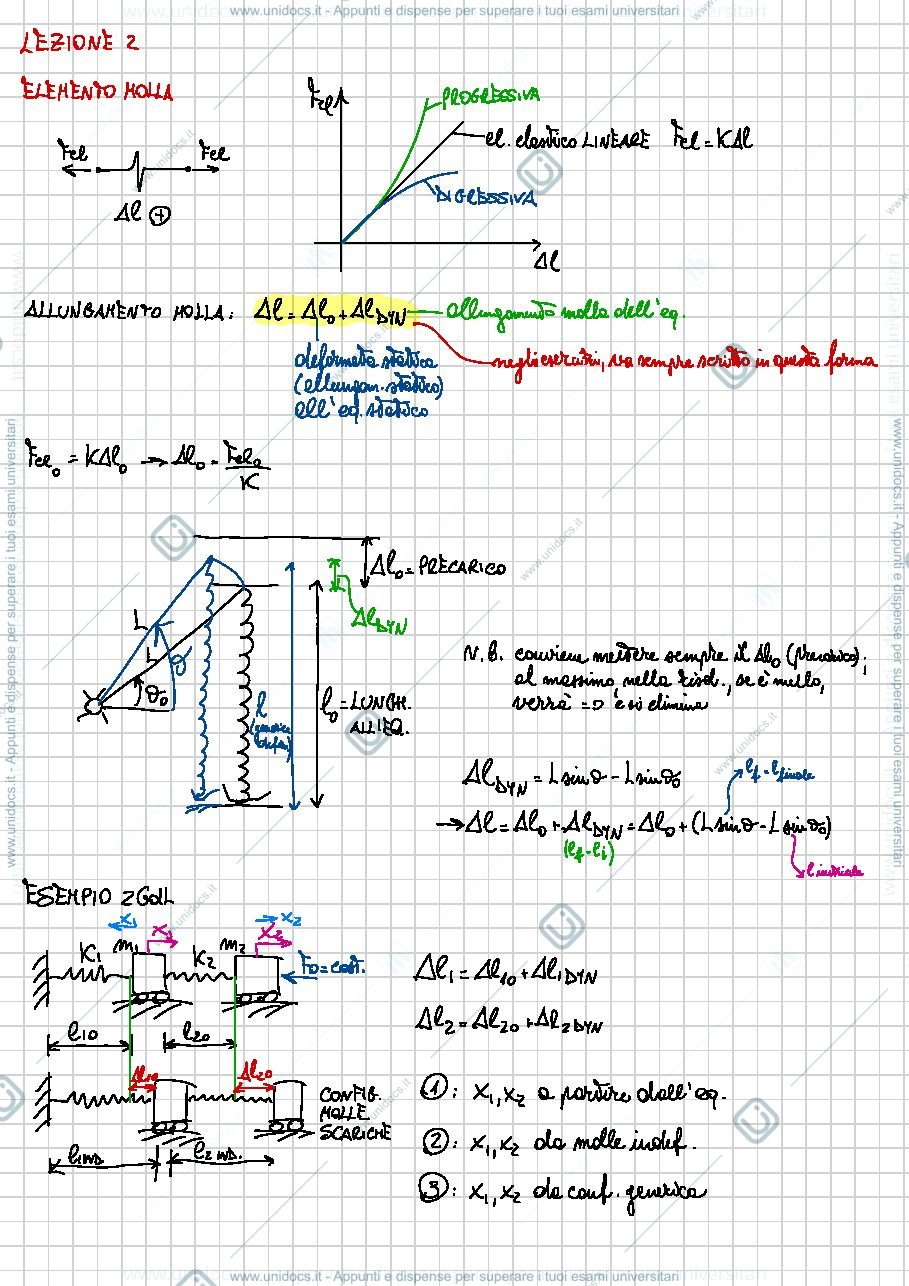 www.unidocs.it - Appunti e dispense per superare i tuoi esami universitari
LEZIONE 2
ELEMENTO MOLLA
Fel
Fel
Δl ⊕
Fel
PROGRESSIVA
el. elastico LINEARE Fel = KΔl
DIGRESSIVA
Δl
ALLUNGAMENTO MOLLA: Δl = Δl₀ + Δl_DYN
allungamento molla dell'eq.
deformata statica
(allungam. statico)
all'eq. statico
negli esercizi, va sempre scritto in questa forma
Fel₀ = KΔl₀ → Δl₀ = Fel₀/K
Δl₀ = PRECARICO
Δl_DYN
L
L
θ
θ₀
l
l₀ = LUNGH.
ALL'EQ.
N.B. conviene mettere sempre il Δl₀ (precarico);
al massimo nella risol., se è nullo,
verrà = 0 e si elimina
Δl_DYN = L sinθ - L sinθ₀
lf = lfinale
→ Δl = Δl₀ + Δl_DYN = Δl₀ + (L sinθ - L sinθ₀)
(lf - li)
l iniziale
ESEMPIO 2GdL
x₁
x₂
K₁
m₁
x₁
K₂
m₂
x₂
F₀ = cost.
l₁₀
l₂₀
Δl₁₀
Δl₂₀
CONFIG.
MOLLE
SCARICHE
l₁IND.
l₂ IND.
Δl₁ = Δl₁₀ + Δl₁DYN
Δl₂ = Δl₂₀ + Δl₂DYN
①: x₁, x₂ a partire dall'eq.
②: x₁, x₂ da molle indef.
③: x₁, x₂ da conf. generica
www.unidocs.it - Appunti e dispense per superare i tuoi esami universitari